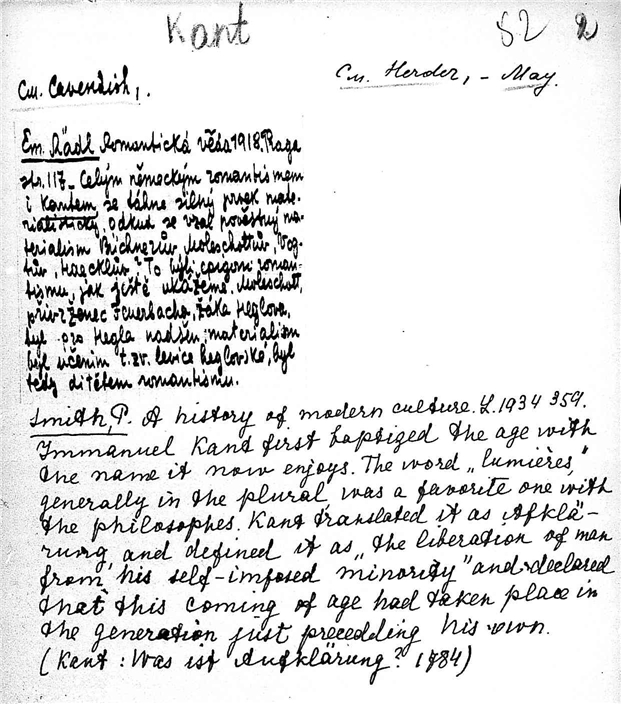 Kant
52 2
См. Cavendish,.
См. Herder, - May.
Em. Rädl Romantická věda 1918. Praga
str. 117_ Celým německým romantismem
i Kantem se táhne silný prvek mate-
rialistický, odkud se vzal pověstný ma-
terialism Büchnerův, Moleschottův, Vog-
tův, Haecklův? To byli epigoni roman-
tismu, jak ještě ukážeme. Moleschott,
přívrženec Feuerbacha, žáka Heglova,
byl pro Hegla nadšen; materialism
byl učením t. zv. levice heglovské, byl
tedy dítětem romantismu.
Smith, P. A history of modern culture. L. 1934 359.
Immanuel Kant first baptized the age with
the name it now enjoys. The word „lumières"
generally in the plural was a favorite one with
the philosophes. Kant translated it as Afklä-
rung and defined it as „the liberation of man
from his self-imposed minority" and declared
that this coming of age had taken place in
the generation just precedding his own.
(Kant: Was ist Aufklärung? 1784)